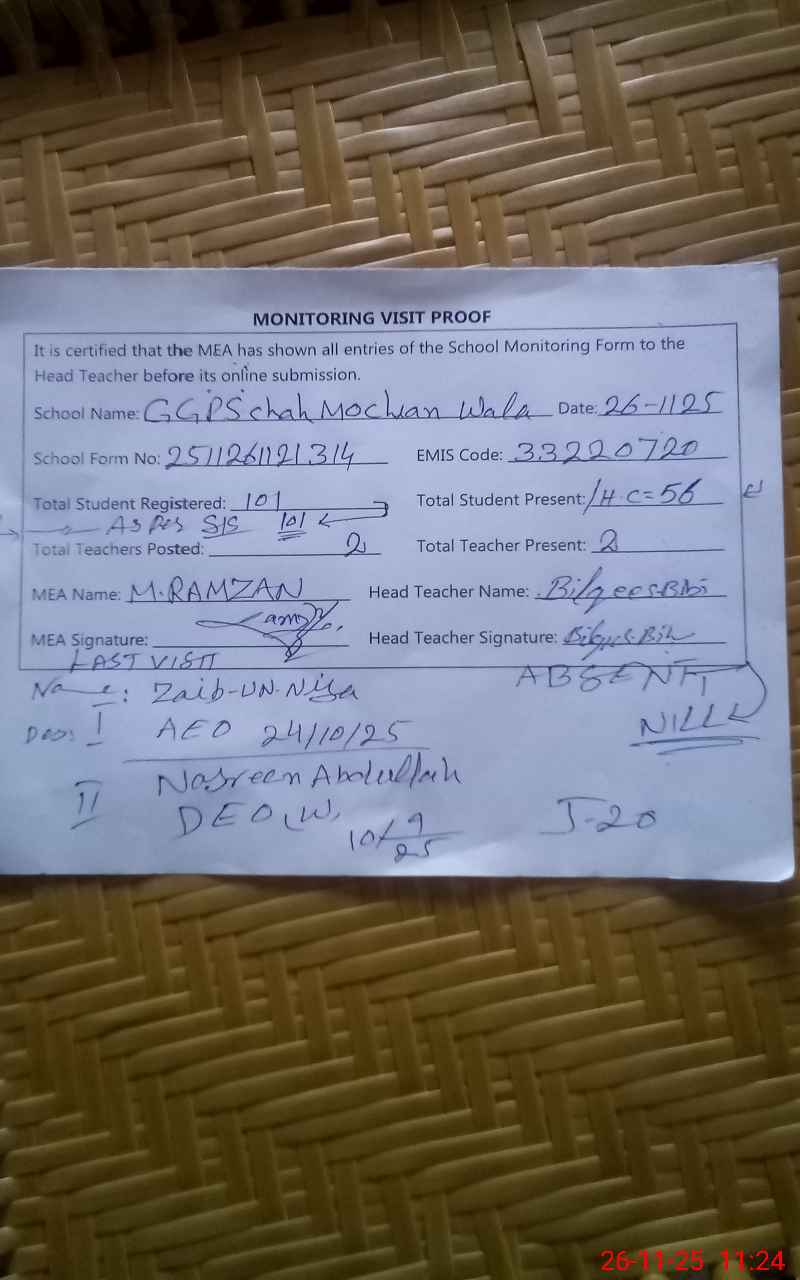 MONITORING VISIT PROOF
It is certified that the MEA has shown all entries of the School Monitoring Form to the
Head Teacher before its online submission.
School Name: GGPS chah Mochian Wala Date: 26-1125
School Form No: 2511261121314 EMIS Code: 33220720
Total Student Registered: 101 Total Student Present: H.C=56
As per SIS 101
Total Teachers Posted: 2 Total Teacher Present: 2
MEA Name: M.RAMZAN Head Teacher Name: Bilqees Bibi
MEA Signature: Head Teacher Signature:
LAST VISIT
Name: Zaib-UN-Nisa ABSENT
I AEO 24/10/25 NILL
II Nasreen Abdullah
DEO(W) J-20
10/9/25
26-11-25 11:24